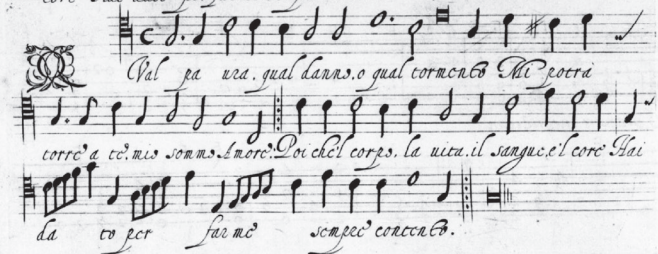 QVal pa ura. qual danno. o qual tormento Mi potrà
torre a te. mio sommo Amore. Poi che'l corpo. la uita. il sangue. e'l core Hai
da to per far me sempre contento.